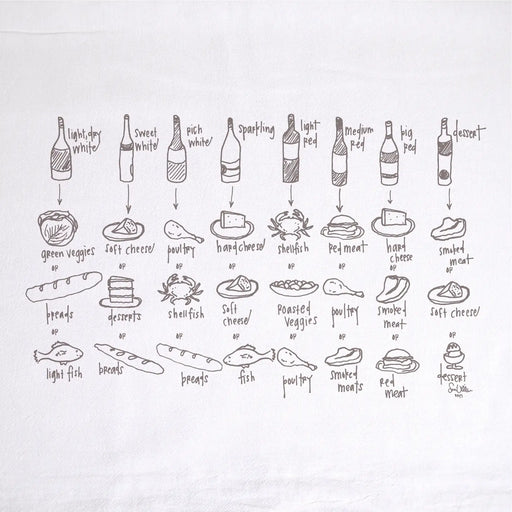 light, dry white
sweet white
rich white
sparkling
light red
medium red
big red
dessert
green veggies
soft cheese
poultry
hard cheese
shellfish
red meat
hard cheese
smoked meat
or or or or or or or or
breads
desserts
shellfish
soft cheese
roasted veggies
poultry
smoked meat
soft cheese
or or or or or or or or
light fish
breads
breads
fish
poultry
smoked meats
red meat
dessert